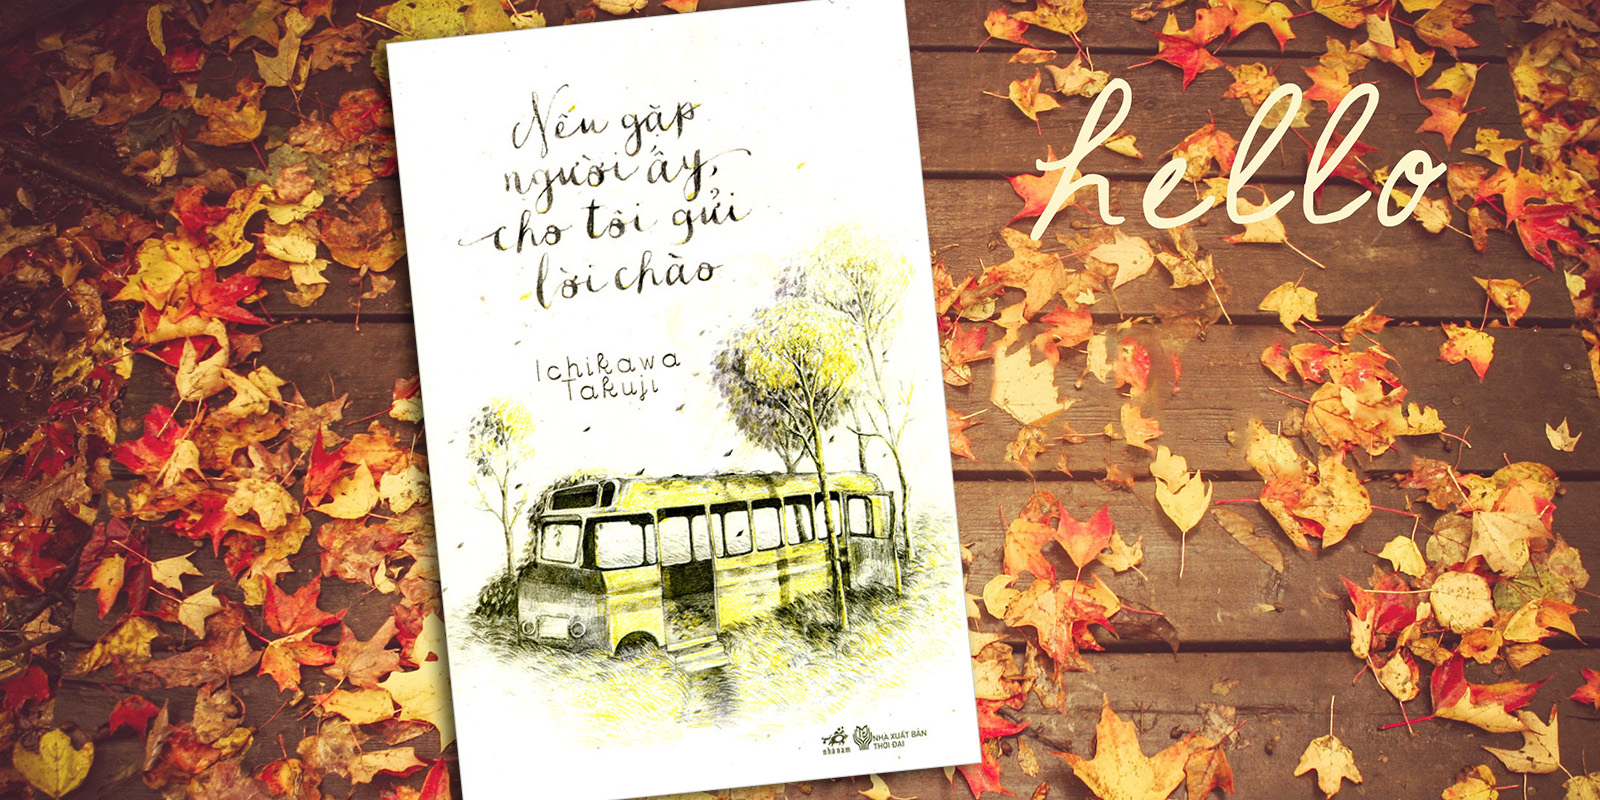 Nếu gặp
người ấy,
cho tôi gửi
lời chào
Ichikawa
Takuji
nhã nam
NHÀ XUẤT BẢN
THỜI ĐẠI
hello